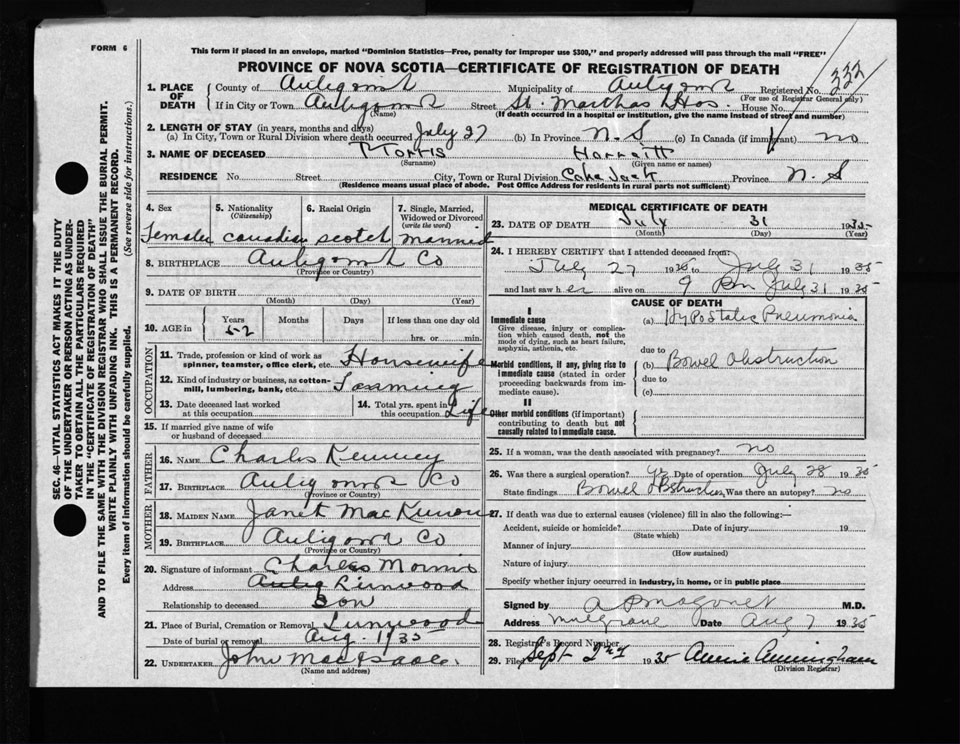 FORM 6
This form if placed in an envelope, marked "Dominion Statistics—Free, penalty for improper use $300," and properly addressed will pass through the mail "FREE"
PROVINCE OF NOVA SCOTIA—CERTIFICATE OF REGISTRATION OF DEATH
332
1. PLACE OF DEATH
County of Antigonish Municipality of Antigonish Registered No.
(For use of Registrar General only)
If in City or Town Antigonish Street St. Marthas Hos. House No.
(Name) (If death occurred in a hospital or institution, give the name instead of street and number)
2. LENGTH OF STAY (in years, months and days)
(a) In City, Town or Rural Division where death occurred July 27 (b) In Province N. S (c) In Canada (if immigrant) no
3. NAME OF DECEASED Morris
(Surname) (Given name or names)
RESIDENCE No. Street City, Town or Rural Division Province N. S
(Residence means usual place of abode. Post Office Address for residents in rural parts not sufficient)
4. Sex
5. Nationality (Citizenship)
6. Racial Origin
7. Single, Married, Widowed or Divorced (write the word)
Female canadian scotch married
8. BIRTHPLACE Antigonish Co
(Province or Country)
9. DATE OF BIRTH
(Month) (Day) (Year)
10. AGE in Years Months Days If less than one day old
52 hrs. or min.
OCCUPATION
11. Trade, profession or kind of work as spinner, teamster, office clerk, etc. Housewife
12. Kind of industry or business, as cotton-mill, lumbering, bank, etc.
13. Date deceased last worked at this occupation
14. Total yrs. spent in this occupation Life
15. If married give name of wife or husband of deceased
FATHER
16. NAME Charles Kenney
17. BIRTHPLACE Antigonish Co
(Province or Country)
MOTHER
18. MAIDEN NAME Janet MacKinnon
19. BIRTHPLACE Antigonish Co
(Province or Country)
20. Signature of informant Charles Morris
Address Antig Linwood
Relationship to deceased Son
21. Place of Burial, Cremation or Removal Linwood
Date of burial or removal Aug. 1 1935
22. UNDERTAKER John MacIsaac.
(Name and address)
MEDICAL CERTIFICATE OF DEATH
23. DATE OF DEATH July 31 1935
(Month) (Day) (Year)
24. I HEREBY CERTIFY that I attended deceased from:
July 27 1935 to July 31 1935
and last saw her alive on 9 Pm July 31 1935
CAUSE OF DEATH
I
Immediate cause
Give disease, injury or complication which caused death, not the mode of dying, such as heart failure, asphyxia, asthenia, etc.
(a) HyPostatic Pneumonia
due to
Morbid conditions, if any, giving rise to immediate cause (stated in order proceeding backwards from immediate cause).
(b) Bowel Obstruction
due to
(c)
II
Other morbid conditions (if important) contributing to death but not causally related to immediate cause.
25. If a woman, was the death associated with pregnancy? no
26. Was there a surgical operation? yes Date of operation July 28 1935
State findings Bowel obstruction Was there an autopsy? no
27. If death was due to external causes (violence) fill in also the following:—
Accident, suicide or homicide? Date of injury 19
(State which)
Manner of injury
(How sustained)
Nature of injury
Specify whether injury occurred in industry, in home, or in public place
Signed by M.D.
Address Mulgrave Date Aug 7 1935
28. Registrar's Record Number
29. Filed Sept 2nd 1935 Annie Cunningham
(Division Registrar)
SEC. 46—VITAL STATISTICS ACT MAKES IT THE DUTY
OF THE UNDERTAKER OR PERSON ACTING AS UNDER-
TAKER TO OBTAIN ALL THE PARTICULARS REQUIRED
IN THE "CERTIFICATE OF REGISTRATION OF DEATH"
AND TO FILE THE SAME WITH THE DIVISION REGISTRAR WHO SHALL ISSUE THE BURIAL PERMIT.
WRITE PLAINLY WITH UNFADING INK. THIS IS A PERMANENT RECORD.
Every item of information should be carefully supplied. (See reverse side for instructions.)